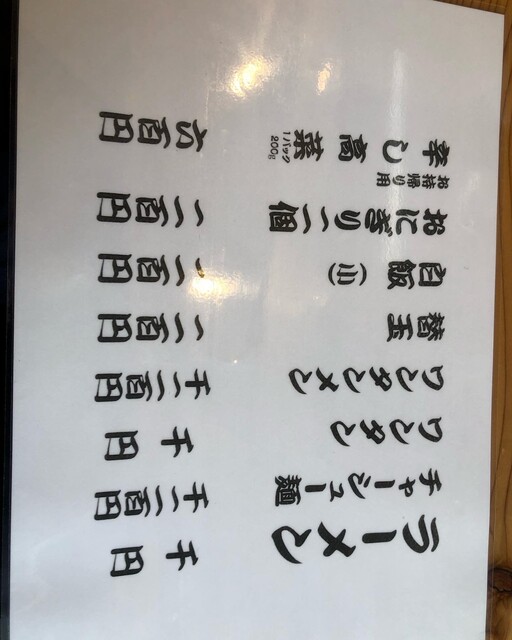 ラーメン 千円
チャーシュー麺 千二百円
ワンタン 千円
ワンタンメン 千二百円
替玉 二百円
白飯(小) 二百円
おにぎり二個 二百円
お持帰り用
辛し高菜 1パック200g 六百円